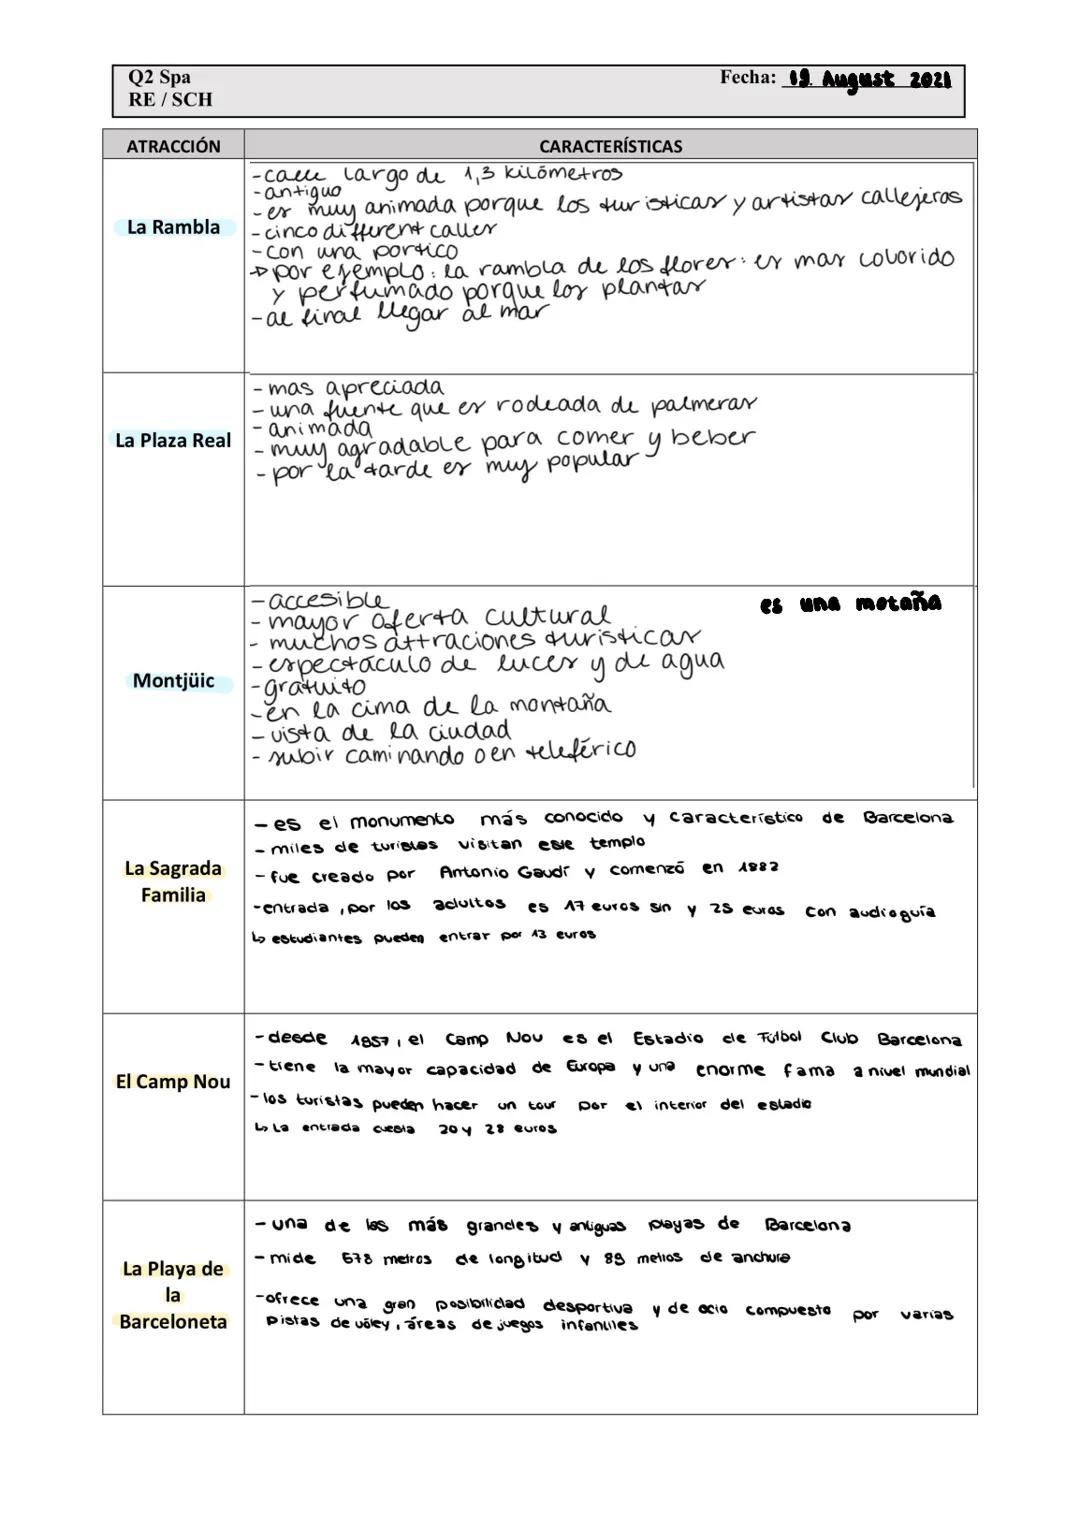 Q2 Spa
RE / SCH
Fecha: 19. August 2021
ATRACCIÓN
CARACTERÍSTICAS
La Rambla
-calle largo de 1,3 kilómetros
-antiguo
-es muy animada porque los turisticas y artistas callejeros
-cinco different calles
-con una portico
→por ejemplo: la rambla de los flores: es mas colorido
y perfumado porque los plantas
-al final llegar al mar
La Plaza Real
-mas apreciada
-una fuente que es rodeada de palmeras
-animada
-muy agradable para comer y beber
-por la tarde es muy popular
Montjüic
-accesible
-mayor oferta cultural
-muchos attraciones turisticas
-espectáculo de luces y de agua
-gratuito
-en la cima de la montaña
-vista de la ciudad
-subir caminando o en teleférico
es una motaña
La Sagrada
Familia
-es el monumento más conocido y característico de Barcelona
-miles de turistas visitan este templo
-fue creado por Antonio Gaudí y comenzó en 1882
-entrada, por los adultos es 17 euros sin y 25 euros con audioguía
↳ estudiantes pueden entrar por 13 euros
El Camp Nou
-desde 1957, el Camp Nou es el Estadio de Fútbol Club Barcelona
-tiene la mayor capacidad de Europa y una enorme fama a nivel mundial
-los turistas pueden hacer un tour por el interior del estadio
↳ La entrada cuesta 20 y 28 euros
La Playa de
la
Barceloneta
-una de las más grandes y antiguas playas de Barcelona
-mide 678 metros de longitud y 89 metros de anchura
-ofrece una gran posibilidad desportiva y de ocio compuesto por varias
pistas de vóley, áreas de juegos infantiles